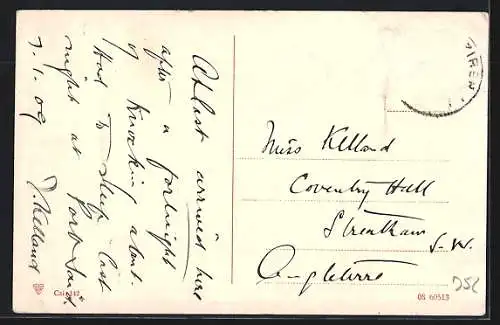 At last arrived here
after a fortnight
of knocking about.
Had to sleep last
night at Port Said.
7.1.09
J. Kelland
Miss Kelland
Coventry Hall
Streatham
S.W.
Angleterre
D52
08 60513